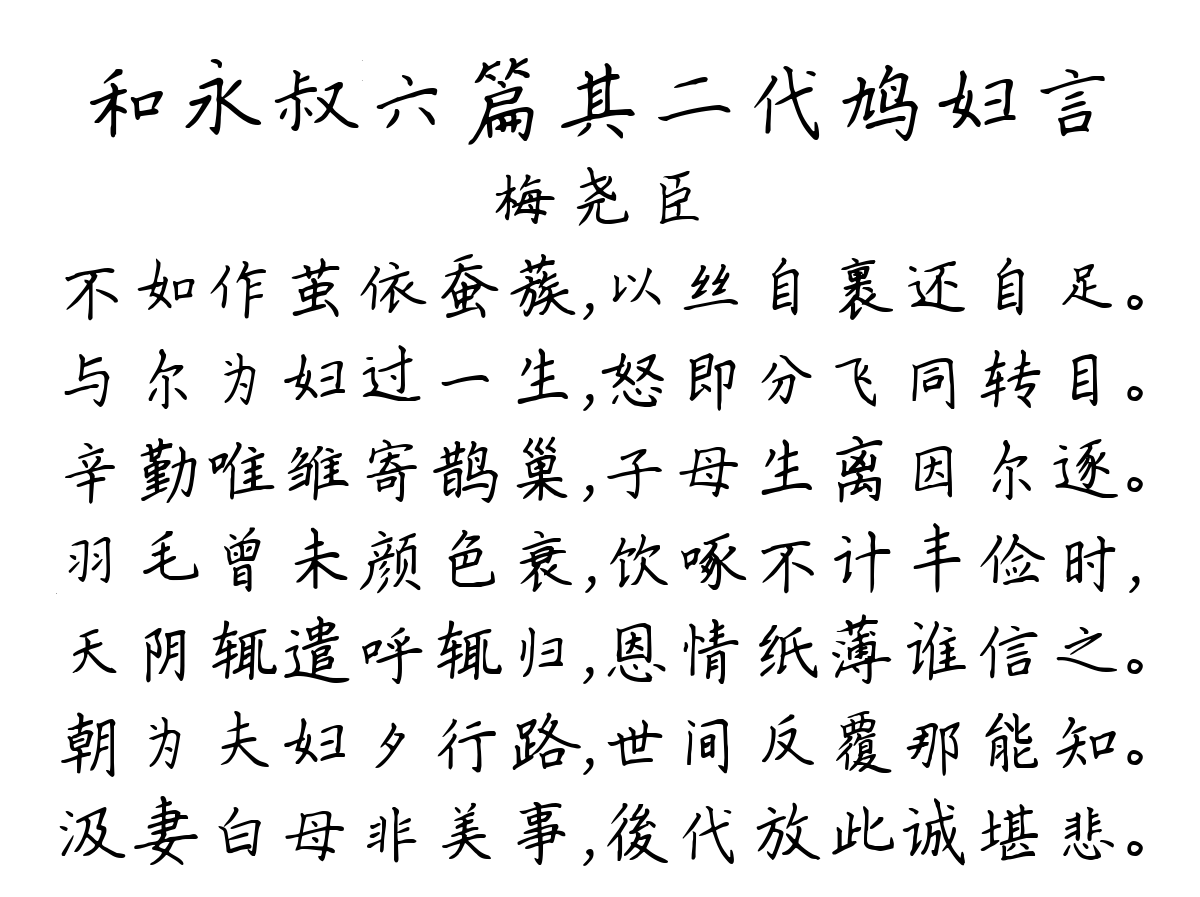 和永叔六篇其二代鸠妇言
梅尧臣
不如作茧依蚕蔟,以丝自裹还自足。
与尔为妇过一生,怒即分飞同转目。
辛勤唯雏寄鹊巢,子母生离因尔逐。
羽毛曾未颜色衰,饮啄不计丰俭时,
天阴辄遣呼辄归,恩情纸薄谁信之。
朝为夫妇夕行路,世间反覆那能知。
汲妻白母非美事,後代放此诚堪悲。